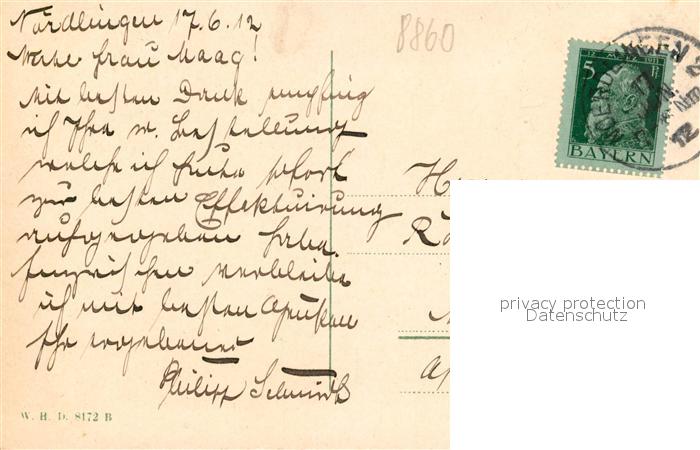 Nördlingen 17.6.12
8860
Werte Frau Maag!
Mit besten Dank empfing
ich Ihre w. Bestellung
welche ich heute sofort
zur besten Effektuirung
aufgegeben habe.
Inzwischen verbleibe
ich mit besten Grüßen
Ihr ergebener
Philipp Schmidt
W. H. D. 8172 B
12 MÄRZ 1911
5 Pf
BAYERN
privacy protection
Datenschutz